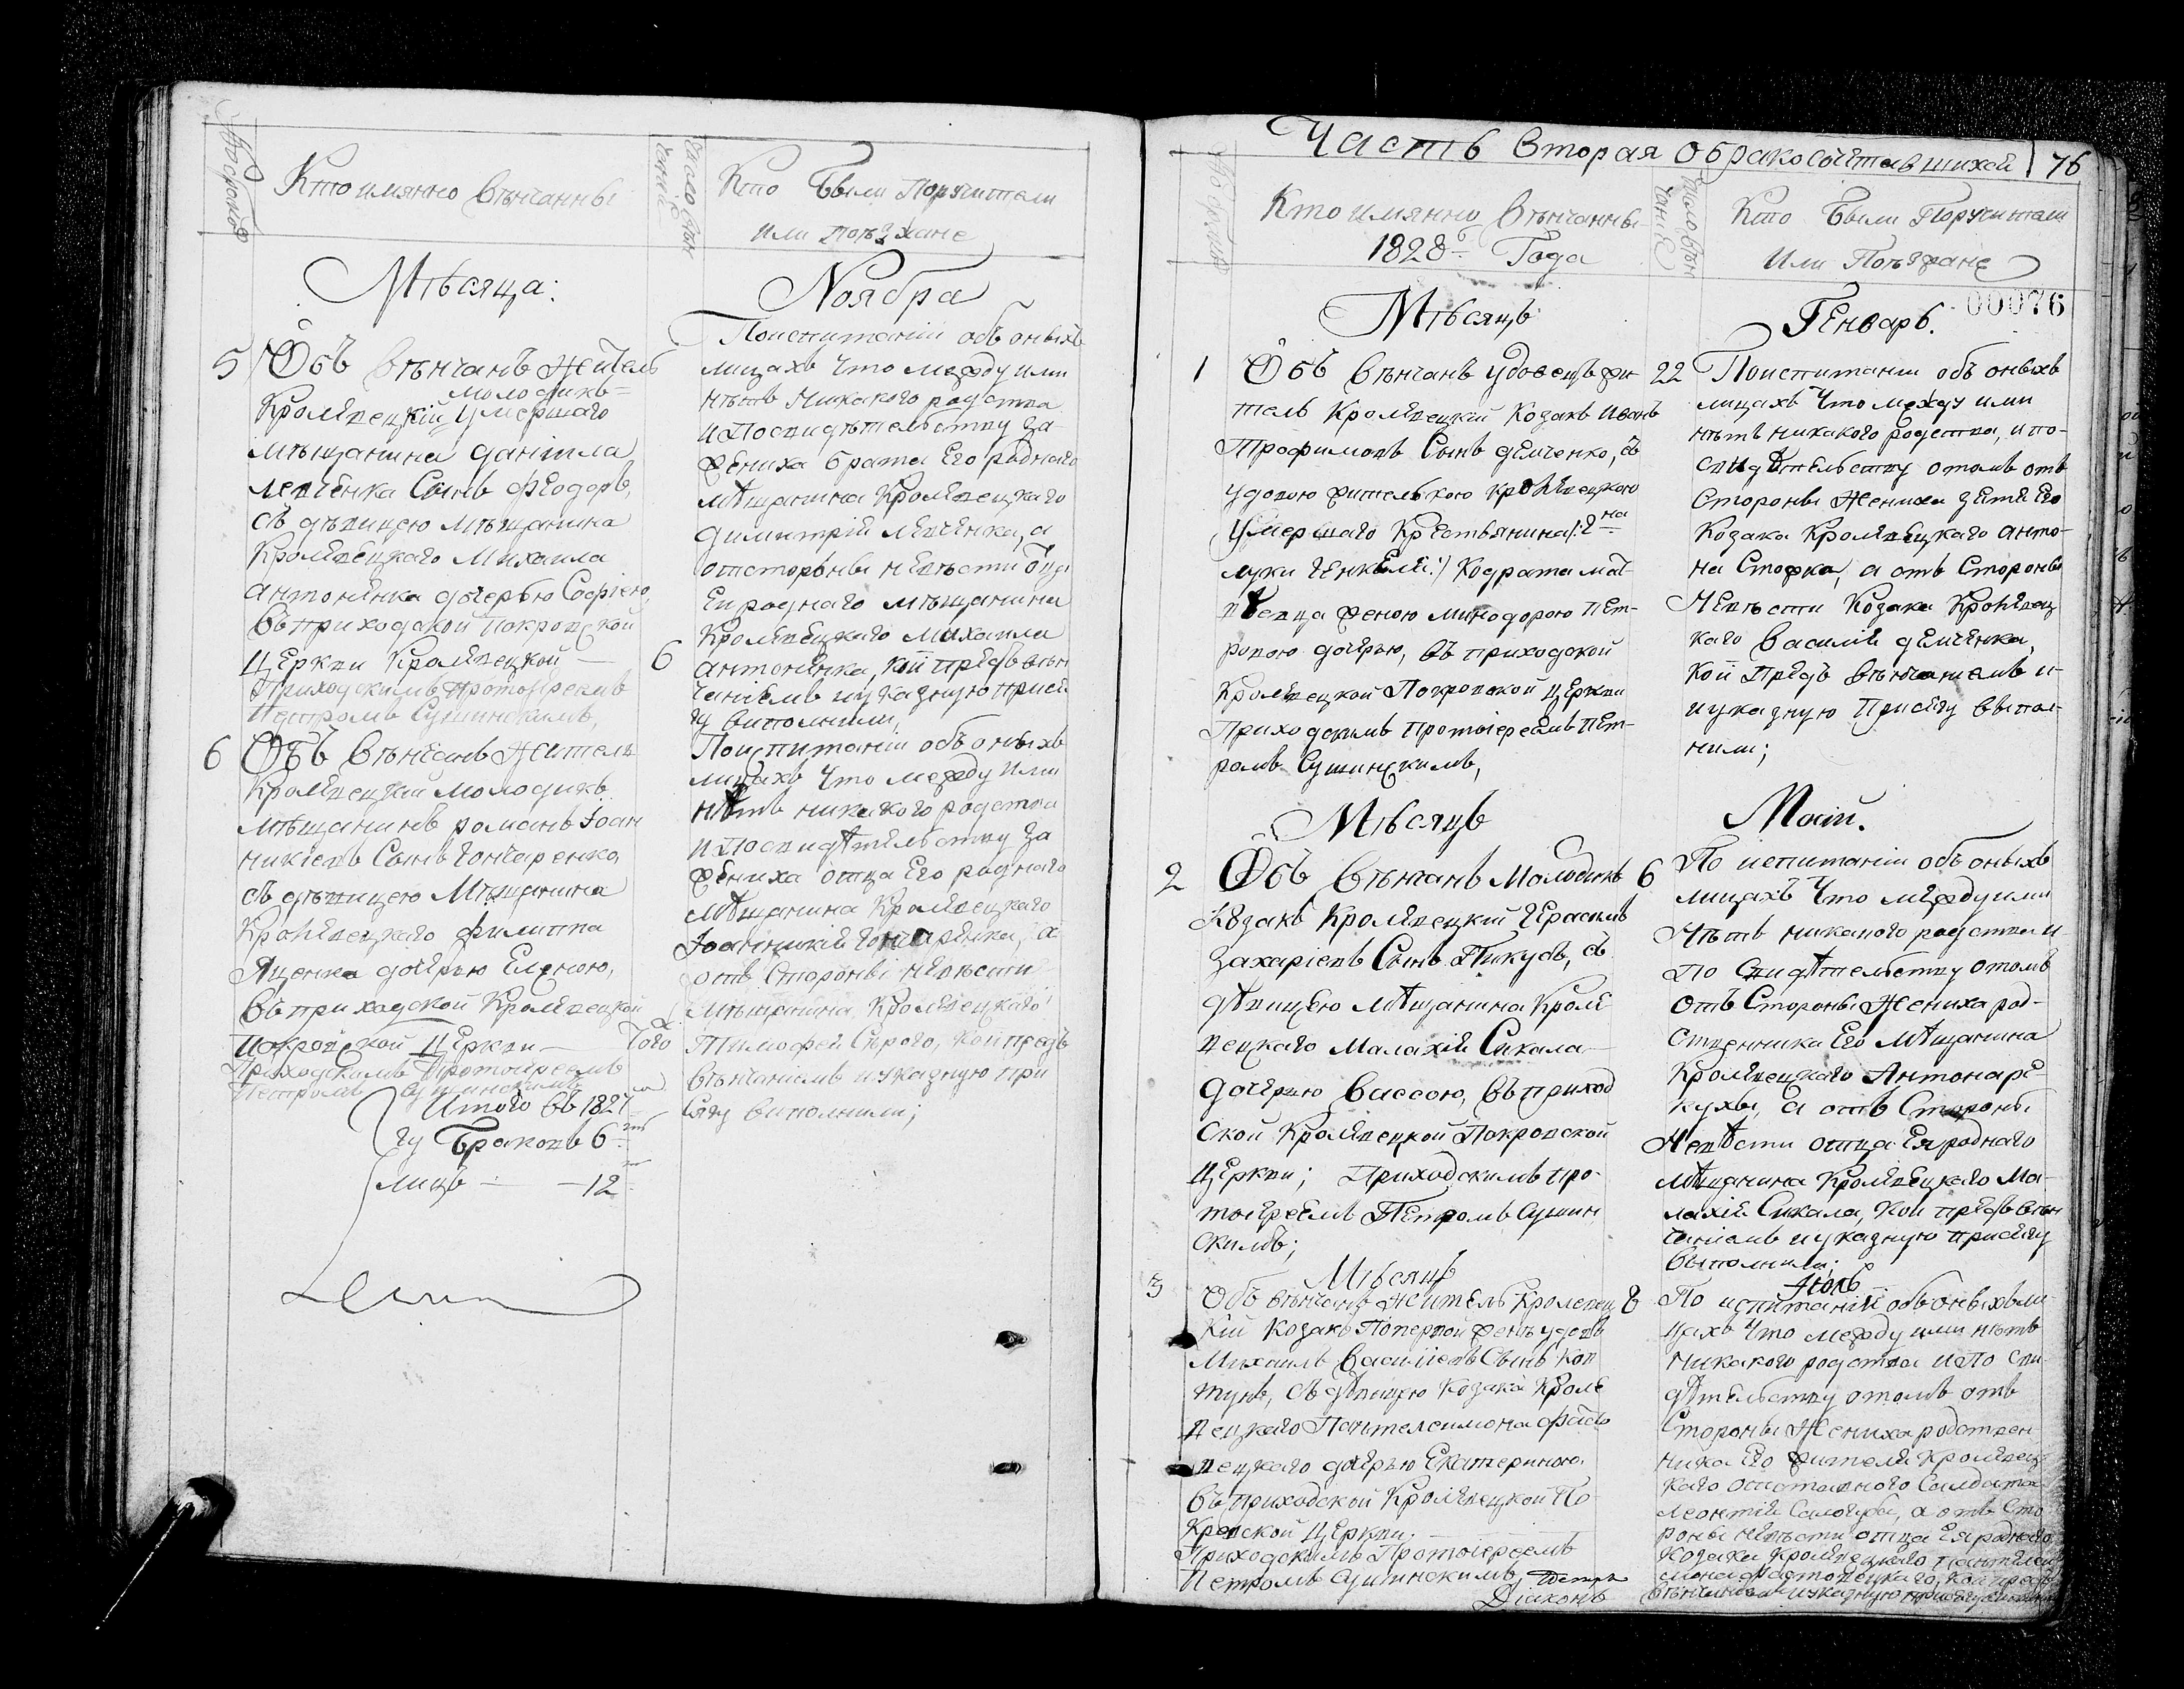 Кто имянно Вѣнчанны
Число Вѣн
чаній
Кто Были Поручители
или поѣзжане
Мѣсяца:
Ноября
5
Объ Вѣнчанъ Житель
молодикъ
Кролевецкій умершаго
мѣщанина даніила
Левченка Сынъ Феодоръ,
съ дѣвицею мѣщанина
Кролевецкаго Михаила
антоненка дочерью Софіею,
Въ приходской покровской
Церкви Кролевецкой
Приходскимъ протоіереемъ
Петромъ Сушинскимъ,
6
Поиспитаніи объ оныхъ
лицахъ Что между ими
нѣтъ никакого родства
и Посвидѣтельству за
жениха брата Его роднаго
мѣщанина Кролевецкаго
димитрій левченка, а
отстороны невѣсти отца
Ея роднаго мѣщанина
Кролевецкаго Михаила
антоненка, кои предъ вѣн
чаніемъ указную прися
гу виполнили,
6
Объ Вѣнчанъ Житель
Кролевецкій молодикъ
мѣщанинъ романъ Іоан
никіевъ Сынъ гончаренко,
съ дѣвицею Мѣщанина
Кролевецкаго филиппа
Яценка дочерью Еленою,
Въ приходской Кролевецкой
покровской Церкви
Приходскимъ Протоіереемъ
Петромъ Сушинскимъ
Итого въ 1827
гу Браковъ 6
лицъ — 12
Того
Поиспитаніи объ оныхъ
лицахъ Что между ими
нѣтъ никакого родства
и посвидѣтельству за
жениха отца Его роднаго
мѣщанина Кролевецкаго
Іоанникій гончаренка, а
отъ Стороны невѣсти
мѣщанина Кролевецкаго
Тимофей Сѣрого, кои предъ
вѣнчаніемъ указную при
сягу виполнили;
Часть Вторая о бракосочетавшихся 76
Кто имянно Вѣнчанны
1828 Года
Число Вѣн
чаній
Кто Были Поручители
Или Поѣзжане
00076
Мѣсяцъ
Генварь.
1
Объ Вѣнчанъ удовецъ жи
тель Кролевецкій Козакъ Иванъ
Трофимовъ Сынъ демченко, съ
удовою жителькою Кролевецкою
умершаго Крестьянина
Кодрата мат
веевца женою минодорою пет-
ровою дочерью, въ приходской
Кролевецкой Покровской Церкви
Приходскимъ протоіереемъ пет-
ромъ Сушинскимъ,
22
Поиспитаніи объ оныхъ
лицахъ Что между ими
нѣтъ никакого родства, и по-
свидѣтельству отомъ отъ
Стороны Жениха зятя Его
Козака Кролевецкаго анто-
на Стожка, а отъ Стороны
Невѣсти Козака Кролевец
каго Василія демченка,
кои Предъ вѣнчаніемъ и
указную Присягу выпол-
нили;
Мѣсяцъ
Май.
2
Объ Вѣнчанъ Молодикъ
Козакъ Кролевецкій Герасимъ
Захаріевъ Сынъ Пикусъ, съ
дѣвицею мѣщанина Кроле
вецкаго Малахія Сикала
дочерью Вассою, въ приход
ской Кролевецкой Покровской
Церкви; Приходскимъ про-
тоіереемъ Петромъ Сушин
скимъ;
6
По испитаніи объ оныхъ
лицахъ Что между ими
Нѣтъ никакого родства и
по свидѣтельству отомъ
отъ Стороны Жениха род-
ственника Его мѣщанина
Кролевецкаго Антона
а отъ Стороны
Невѣсти отца Ея роднаго
мѣщанина Кролевецкаго Ма-
лахія Сикала, кои предъ вѣн
чаніемъ указную присягу
выполнили;
Мѣсяцъ
3
Объ вѣнчанъ житель Кролевец
кій Козакъ Попервой женѣ удовъ
Михаилъ Василіевъ Сынъ Ков
тунъ, съ дѣвицею Козака Кроле
вецкаго Пантелеимона
дочерью Екатериною.
въ приходской Кролевецкой По
кровской Церкви.
Приходскимъ Протоіереемъ
Петромъ Сушинскимъ,
Діаконъ
8
По испитаній объ оныхъ ли
цахъ Что между ими нѣтъ
никакого родства и по сви
дѣтельству отомъ отъ
Стороны Жениха родствен
ника Его жителя Кролевец
каго отставного Салдата
леонтія а отъ Сто
роны невѣсти отца Ея роднаго
Козака Кролевецкаго пантелеи
мона кои предъ
вѣнчаніемъ указную присягу